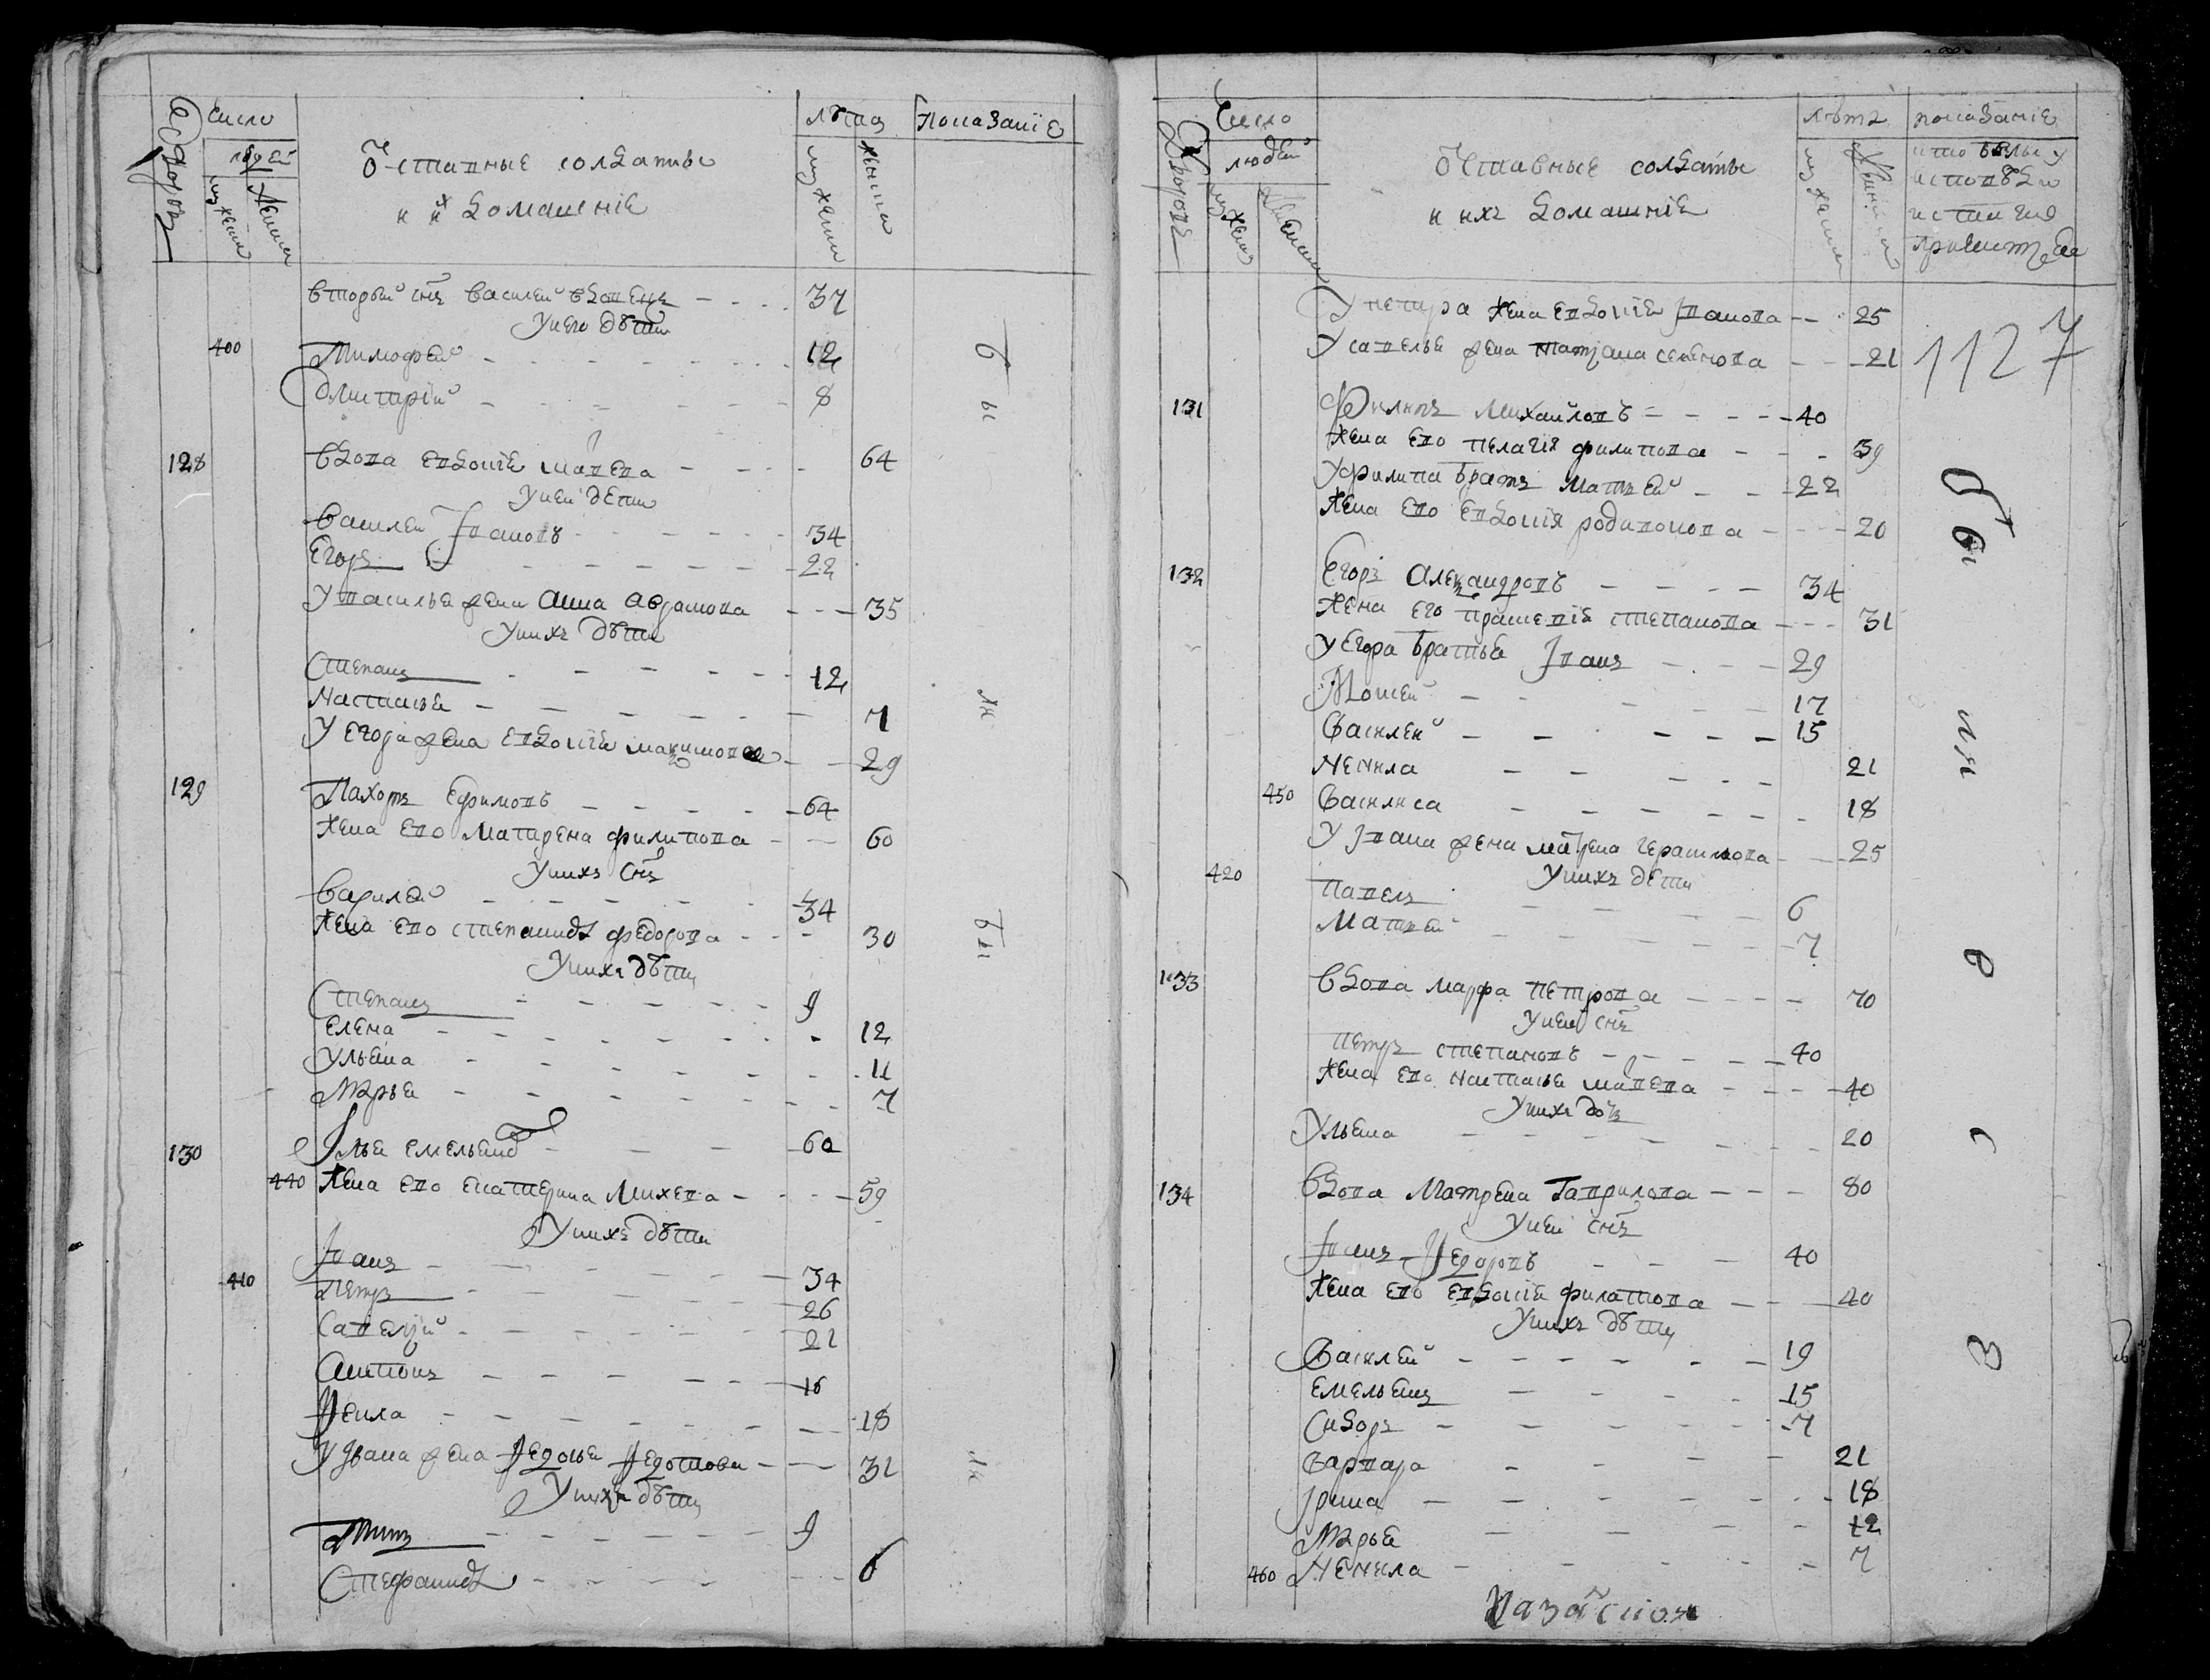 Число
людей
Дворовъ
мужеска
женска
Ѿставные солдаты
и их домашніе
лѣта
мужеска
женска
показаніе
вторый снъ василеи вдовецъ 37
У него дѣти
400 Тимоѳей 12
Дмитрій 8
128 Вдова евдокіѣ иавлева 64
У неи дети
Василеи Jвановъ 34
Егоръ 22
У василья жена анна аврамова 35
У нихъ дѣти
Степанъ 12
Настасья 7
У егора жена евдокіѣ максимова 29
129 Пахомъ Ефимовъ 64
Жена ево Матрена филипова 60
У нихъ снъ
Василей 34
Жена ево степанида федорова 30
У нихъ дѣти
Степанъ 9
Елена 12
Ульяна 11
Марья 7
130 Jлья емельянв 60
440 Жена ево екатерина Михева 59
У нихъ дѣти
Jванъ 34
410 Петръ 26
Савелій 21
Антонъ 16
Ѳекла 18
У Jвана жена Ѳедосья Ѳедотова 31
У нихъ дѣти
Титъ 9
Стефанида 6
бы
ли
бы
ли
Число
людей
Дворовъ
мужеска
женска
Ѿставные солдаты
и ихъ домашніе
лѣтъ
мужеска
женска
показаніе
кто былъ у
исповѣди
и с тыи хъ
У петра жена евдокіѣ Jванова 25
У савелья жена татьяна семенова 21
1127
131 Филипъ Михайловъ 40
Жена ево пелагія филипова 39
У филипа братъ Матвей 22
Жена ево евдокія родивонова 20
132 Егоръ Александровъ 34
Жена его прасковія степанова 31
У Егора братья Jванъ 29
Мосей 17
Василей 15
Ненила 21
450 Василиса 18
У Jвана жена матрена герасимова 25
У нихъ дети
420 Павелъ 6
Матвей 7
133 Вдова марфа петрова 70
У неи снъ
петръ степановъ 40
Жена ево настасья иавлева 40
У нихъ дочь
Ульяна 20
134 Вдова Матрена Гаврилова 80
У неи снъ
Jванъ Ѳедоровъ 40
Жена ево евдокіѣ филатова 40
У нихъ дѣти
Василей 19
Емельянъ 15
Сидоръ 7
Варвара 21
Jрина 18
Марья 12
460 Ненила 7
бы
ли
в
с
ѣ